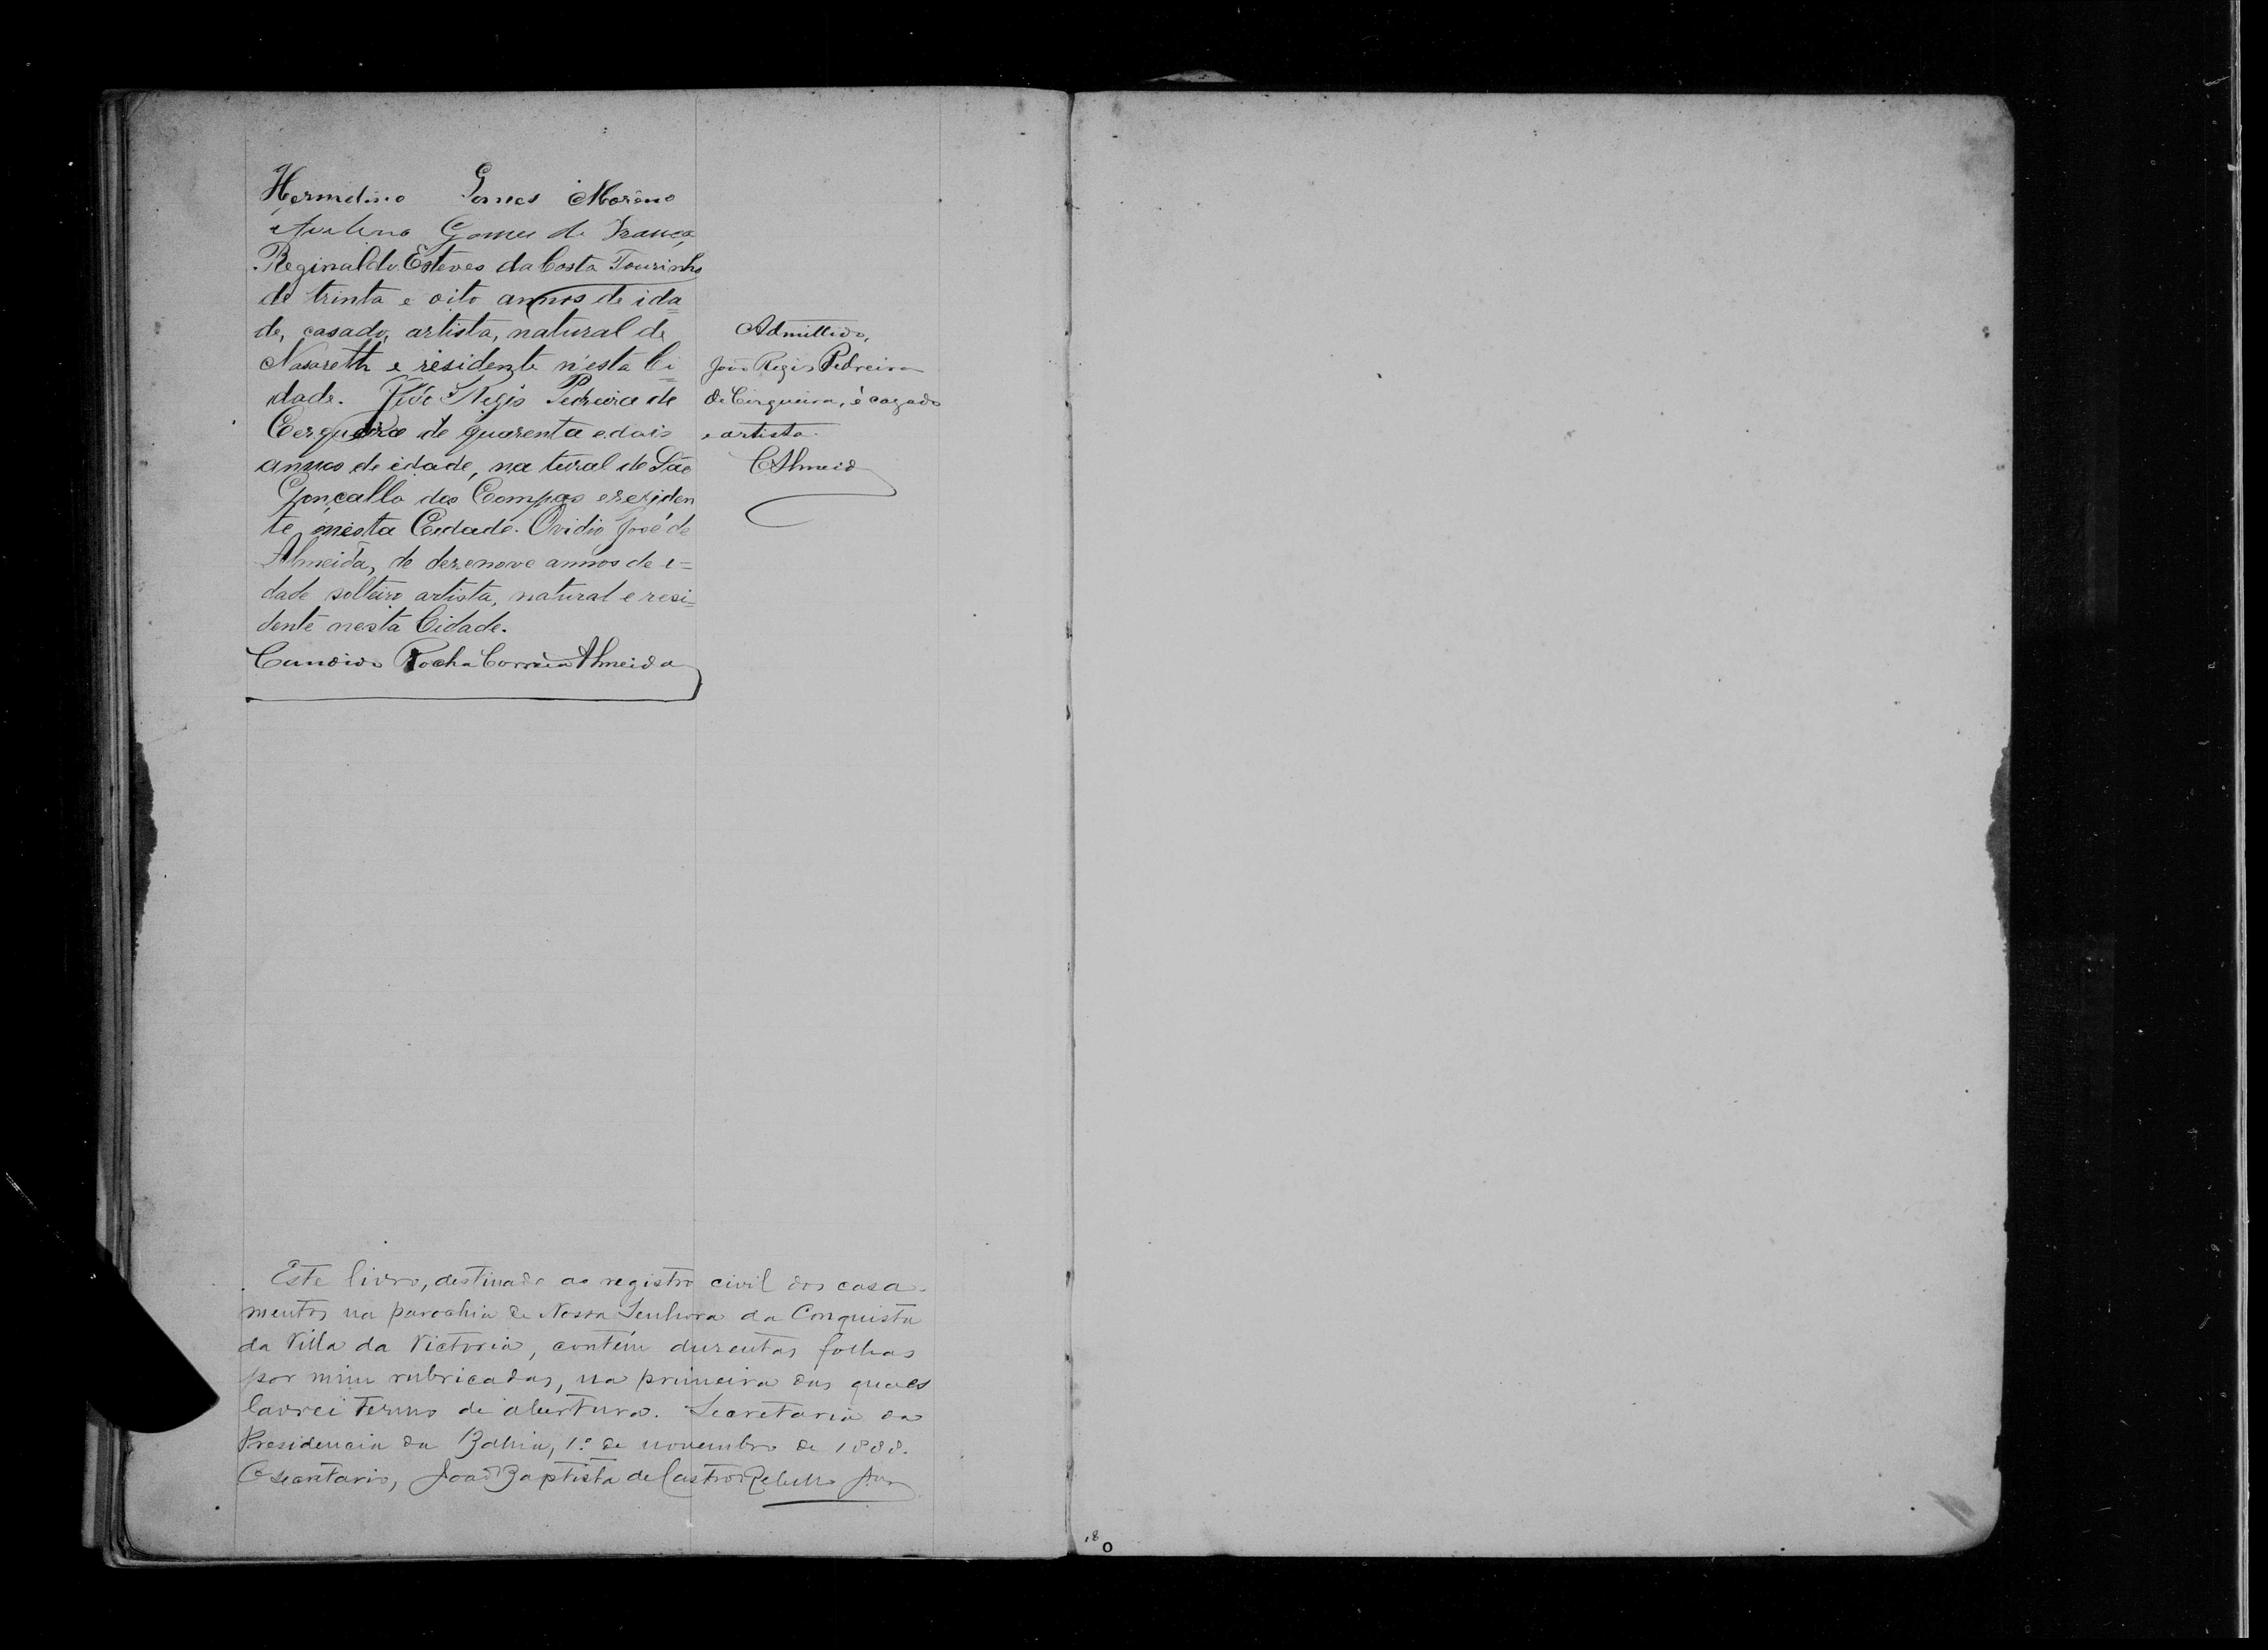 Hermelino Gomes Morêno
Avelina Gomes de França
Reginaldo Esteves da Costa Tourinho
de trinta e oito annos de ida=
de, casado, artista, natural de
Nasareth e residente n'esta Ci=
dade. João Regis Pedreira de
Cerqueira de quarenta e dois
annos de idade, na tural de São
Gonçallo dos Campos e reziden
te, nesta Cidade. Ovidio José de
Almeida, de dezenove annos de i=
dade solteiro artista, natural e resi=
dente nesta Cidade.
Candido Rocha Corrêa Almeida
Admittido,
João Regis Pedreira
de Cirqueira, é cazado
e artista.
CAlmeida
Este livro, destinado ao registro civil dos casa-
mentos na parochia de Nossa Senhora da Conquista
da Villa da Victoria, contém duzentas folhas
por mim rubricadas, na primeira das quaes
lavrei termo de abertura. Secretaria da
Presidencia da Bahia, 1º de novembro de 1888.
O secretario, João Baptista de Castro Rebello Jor
180